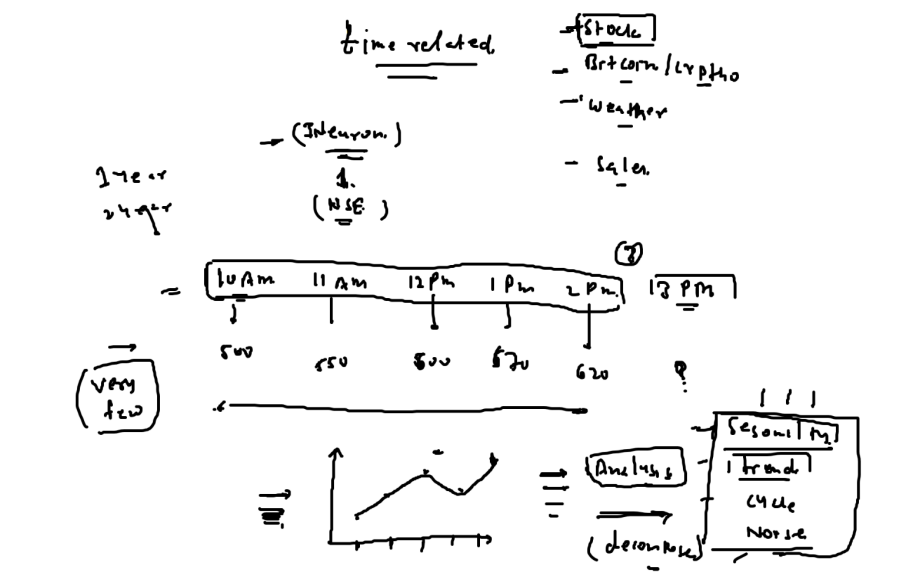 time related
- Stock
- Bitcoin/Crypto
- Weather
- Sales
→ (INeuron.)
1.
(NSE)
1 year
2 year
= 10 Am 11 Am 12 Pm 1 Pm 2 Pm. 13 PM
500 550 600 570 620 ?
very
few
Analysis
(decompose)
Sesonality
trend
cycle
Noise